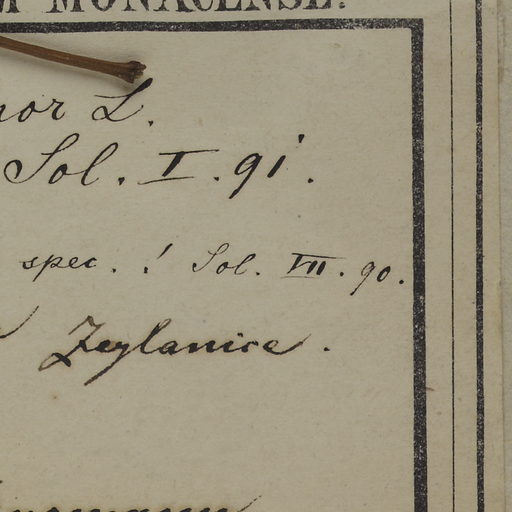 MONACENSE.
L.
Sol. I. 91.
spec. ! Sol. VII. 90.
Zeylanice.